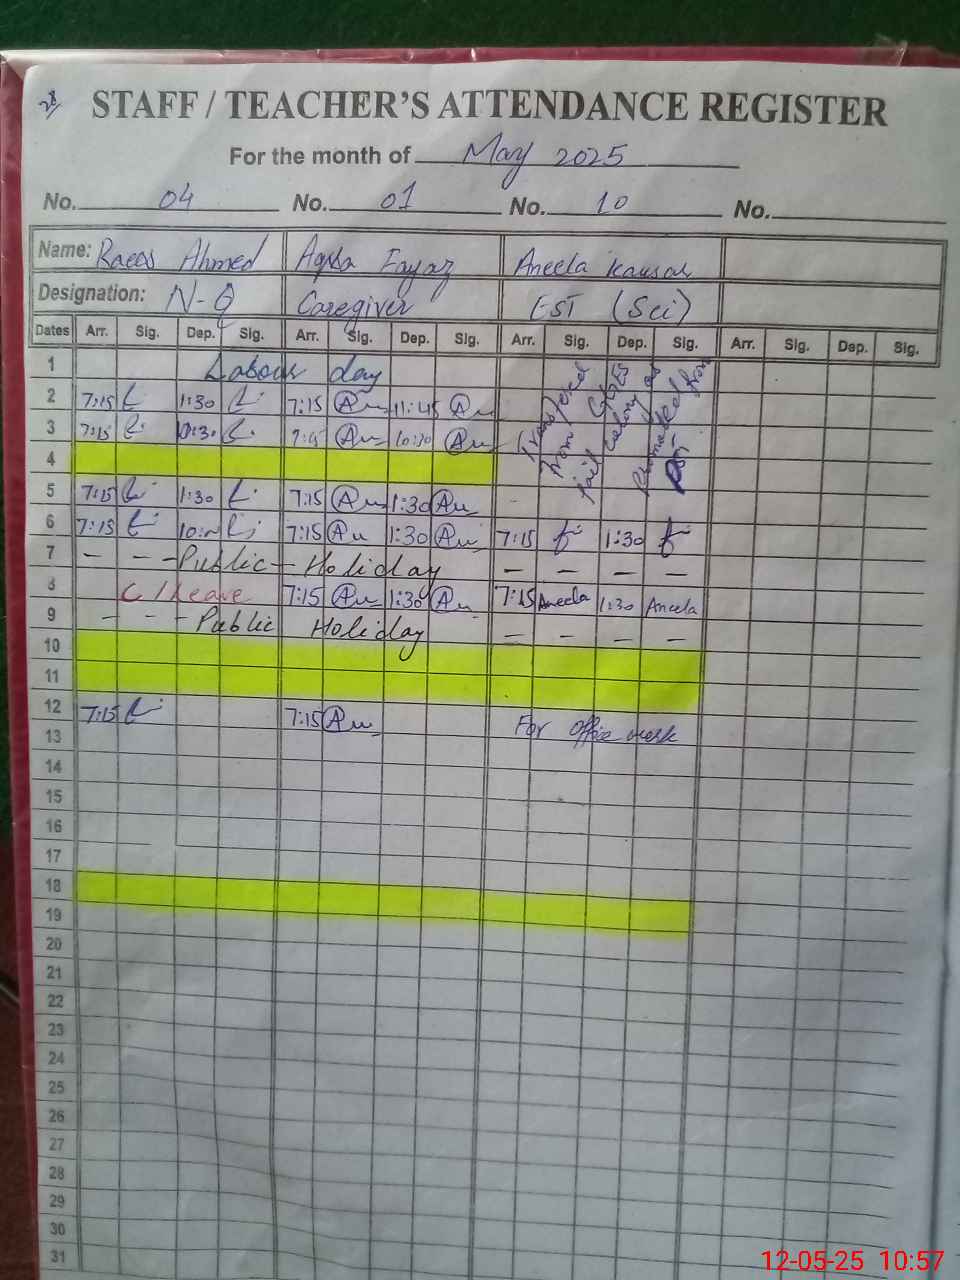 28/
STAFF / TEACHER'S ATTENDANCE REGISTER
For the month of May 2025
No. 04 No. 01 No. 10 No.
Name: Raees Ahmed Aqsa Fayaz Aneela Kausar
Designation: N-Q Caregiver EST (Sci)
Dates Arr. Sig. Dep. Sig. Arr. Sig. Dep. Sig. Arr. Sig. Dep. Sig. Arr. Sig. Dep. Sig.
1 Labour day
2 7:15 1:30 7:15 11:45
3 7:15 10:30 7:15 10:30
Transfered from GGES jail colony as Promoted from PST
4
5 7:15 1:30 7:15 1:30
6 7:15 7:15 1:30 7:15 1:30
7 - - - Public - Holiday - - - -
8 C/Leave 7:15 1:30 7:15 Aneela 1:30 Aneela
9 - - - Public Holiday - - - -
10
11
12 7:15 7:15 For office work
13
14
15
16
17
18
19
20
21
22
23
24
25
26
27
28
29
30
31
12-05-25 10:57